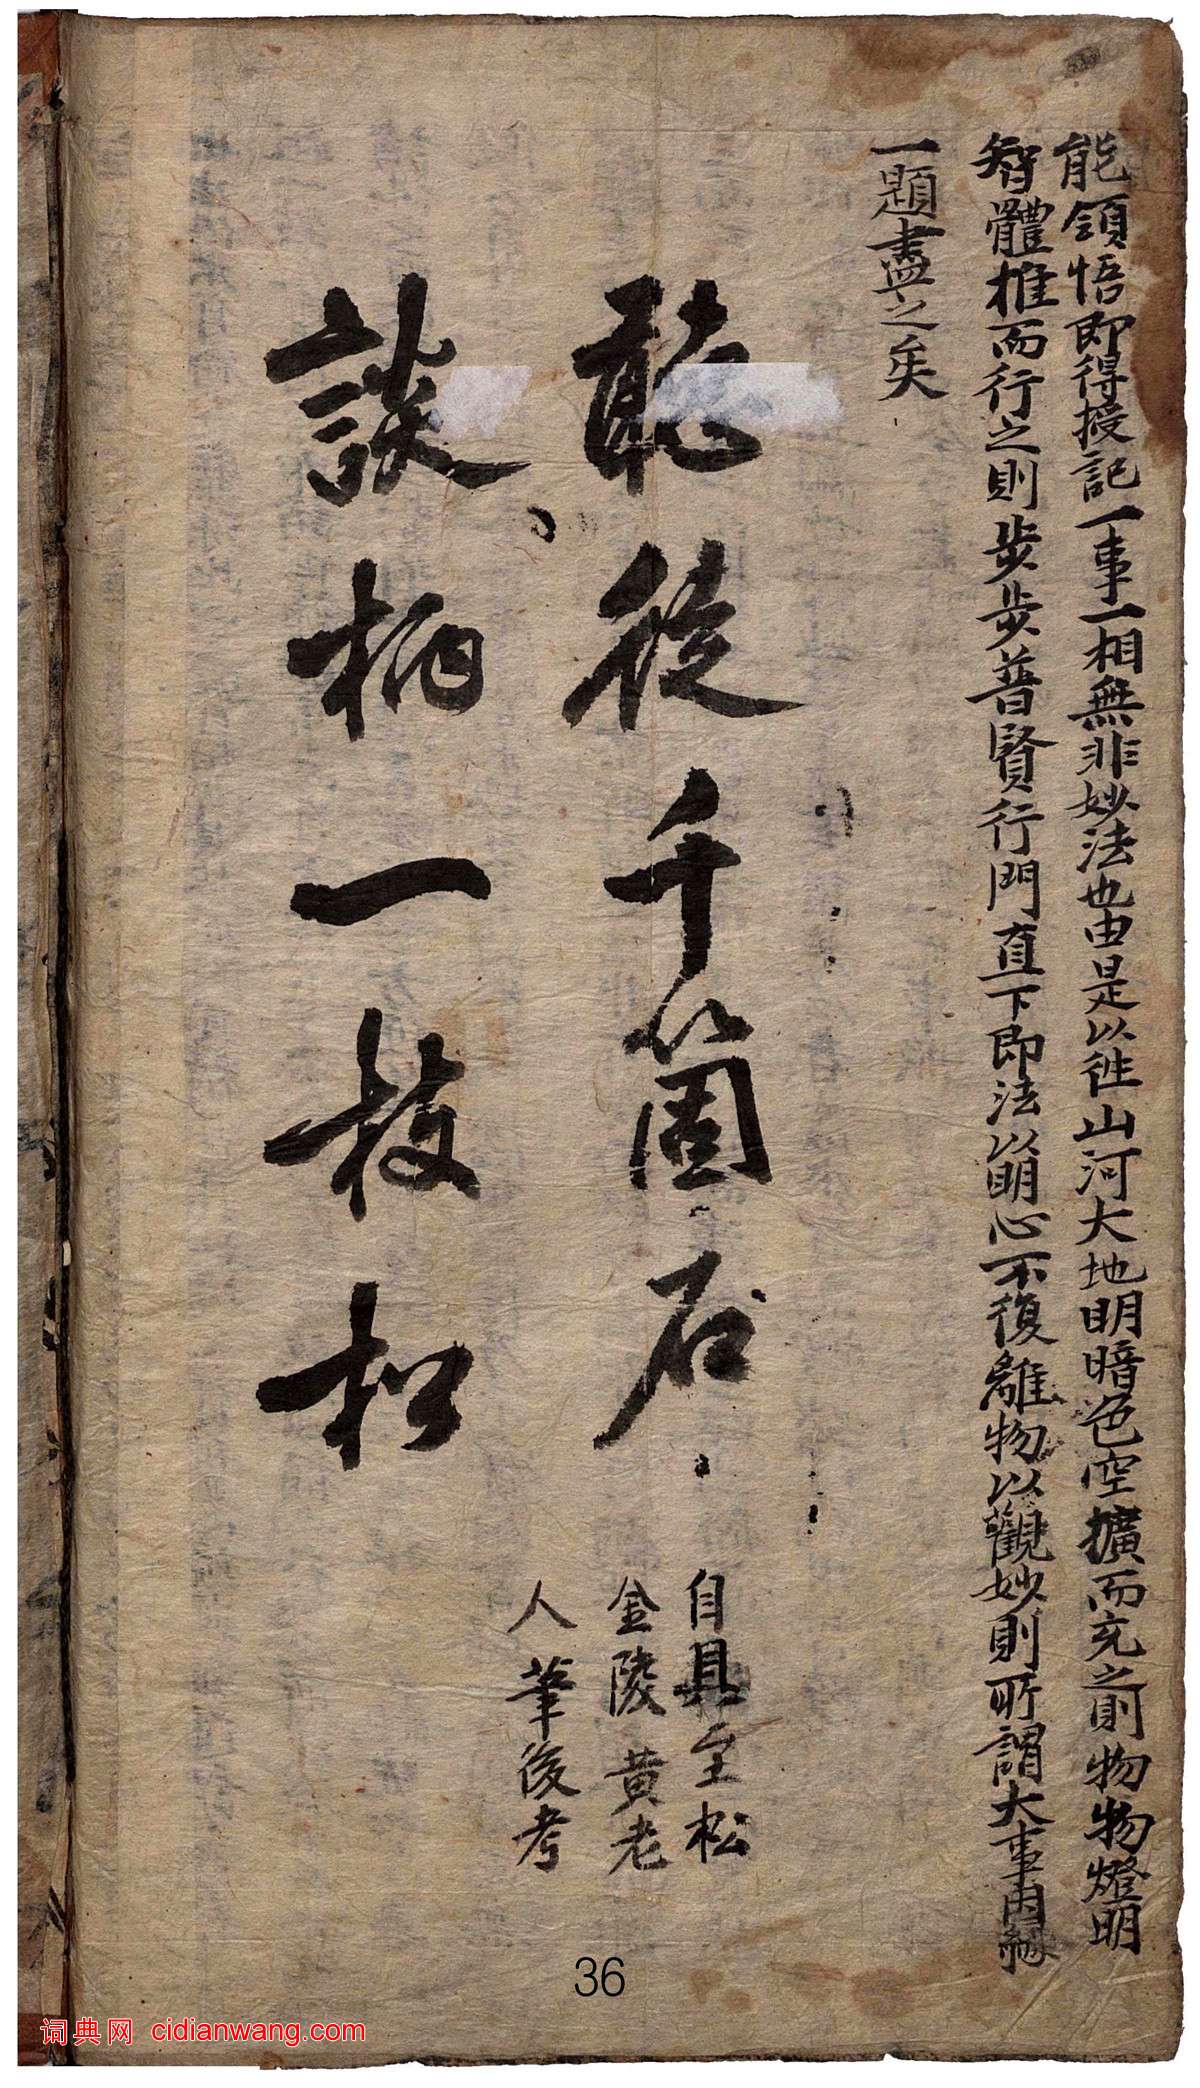 能領悟即得授記一事一相無非妙法也由是以往山河大地明暗色空擴而充之則物物燈明
智體推而行之則步步普賢行門直下即法以明心不復離物以觀妙則所謂大事因緣
一題盡之矣
聽從千箇石
談柄一枝松
自具至松
金陵黄老
人筆後考
36
词典网 cidianwang.com